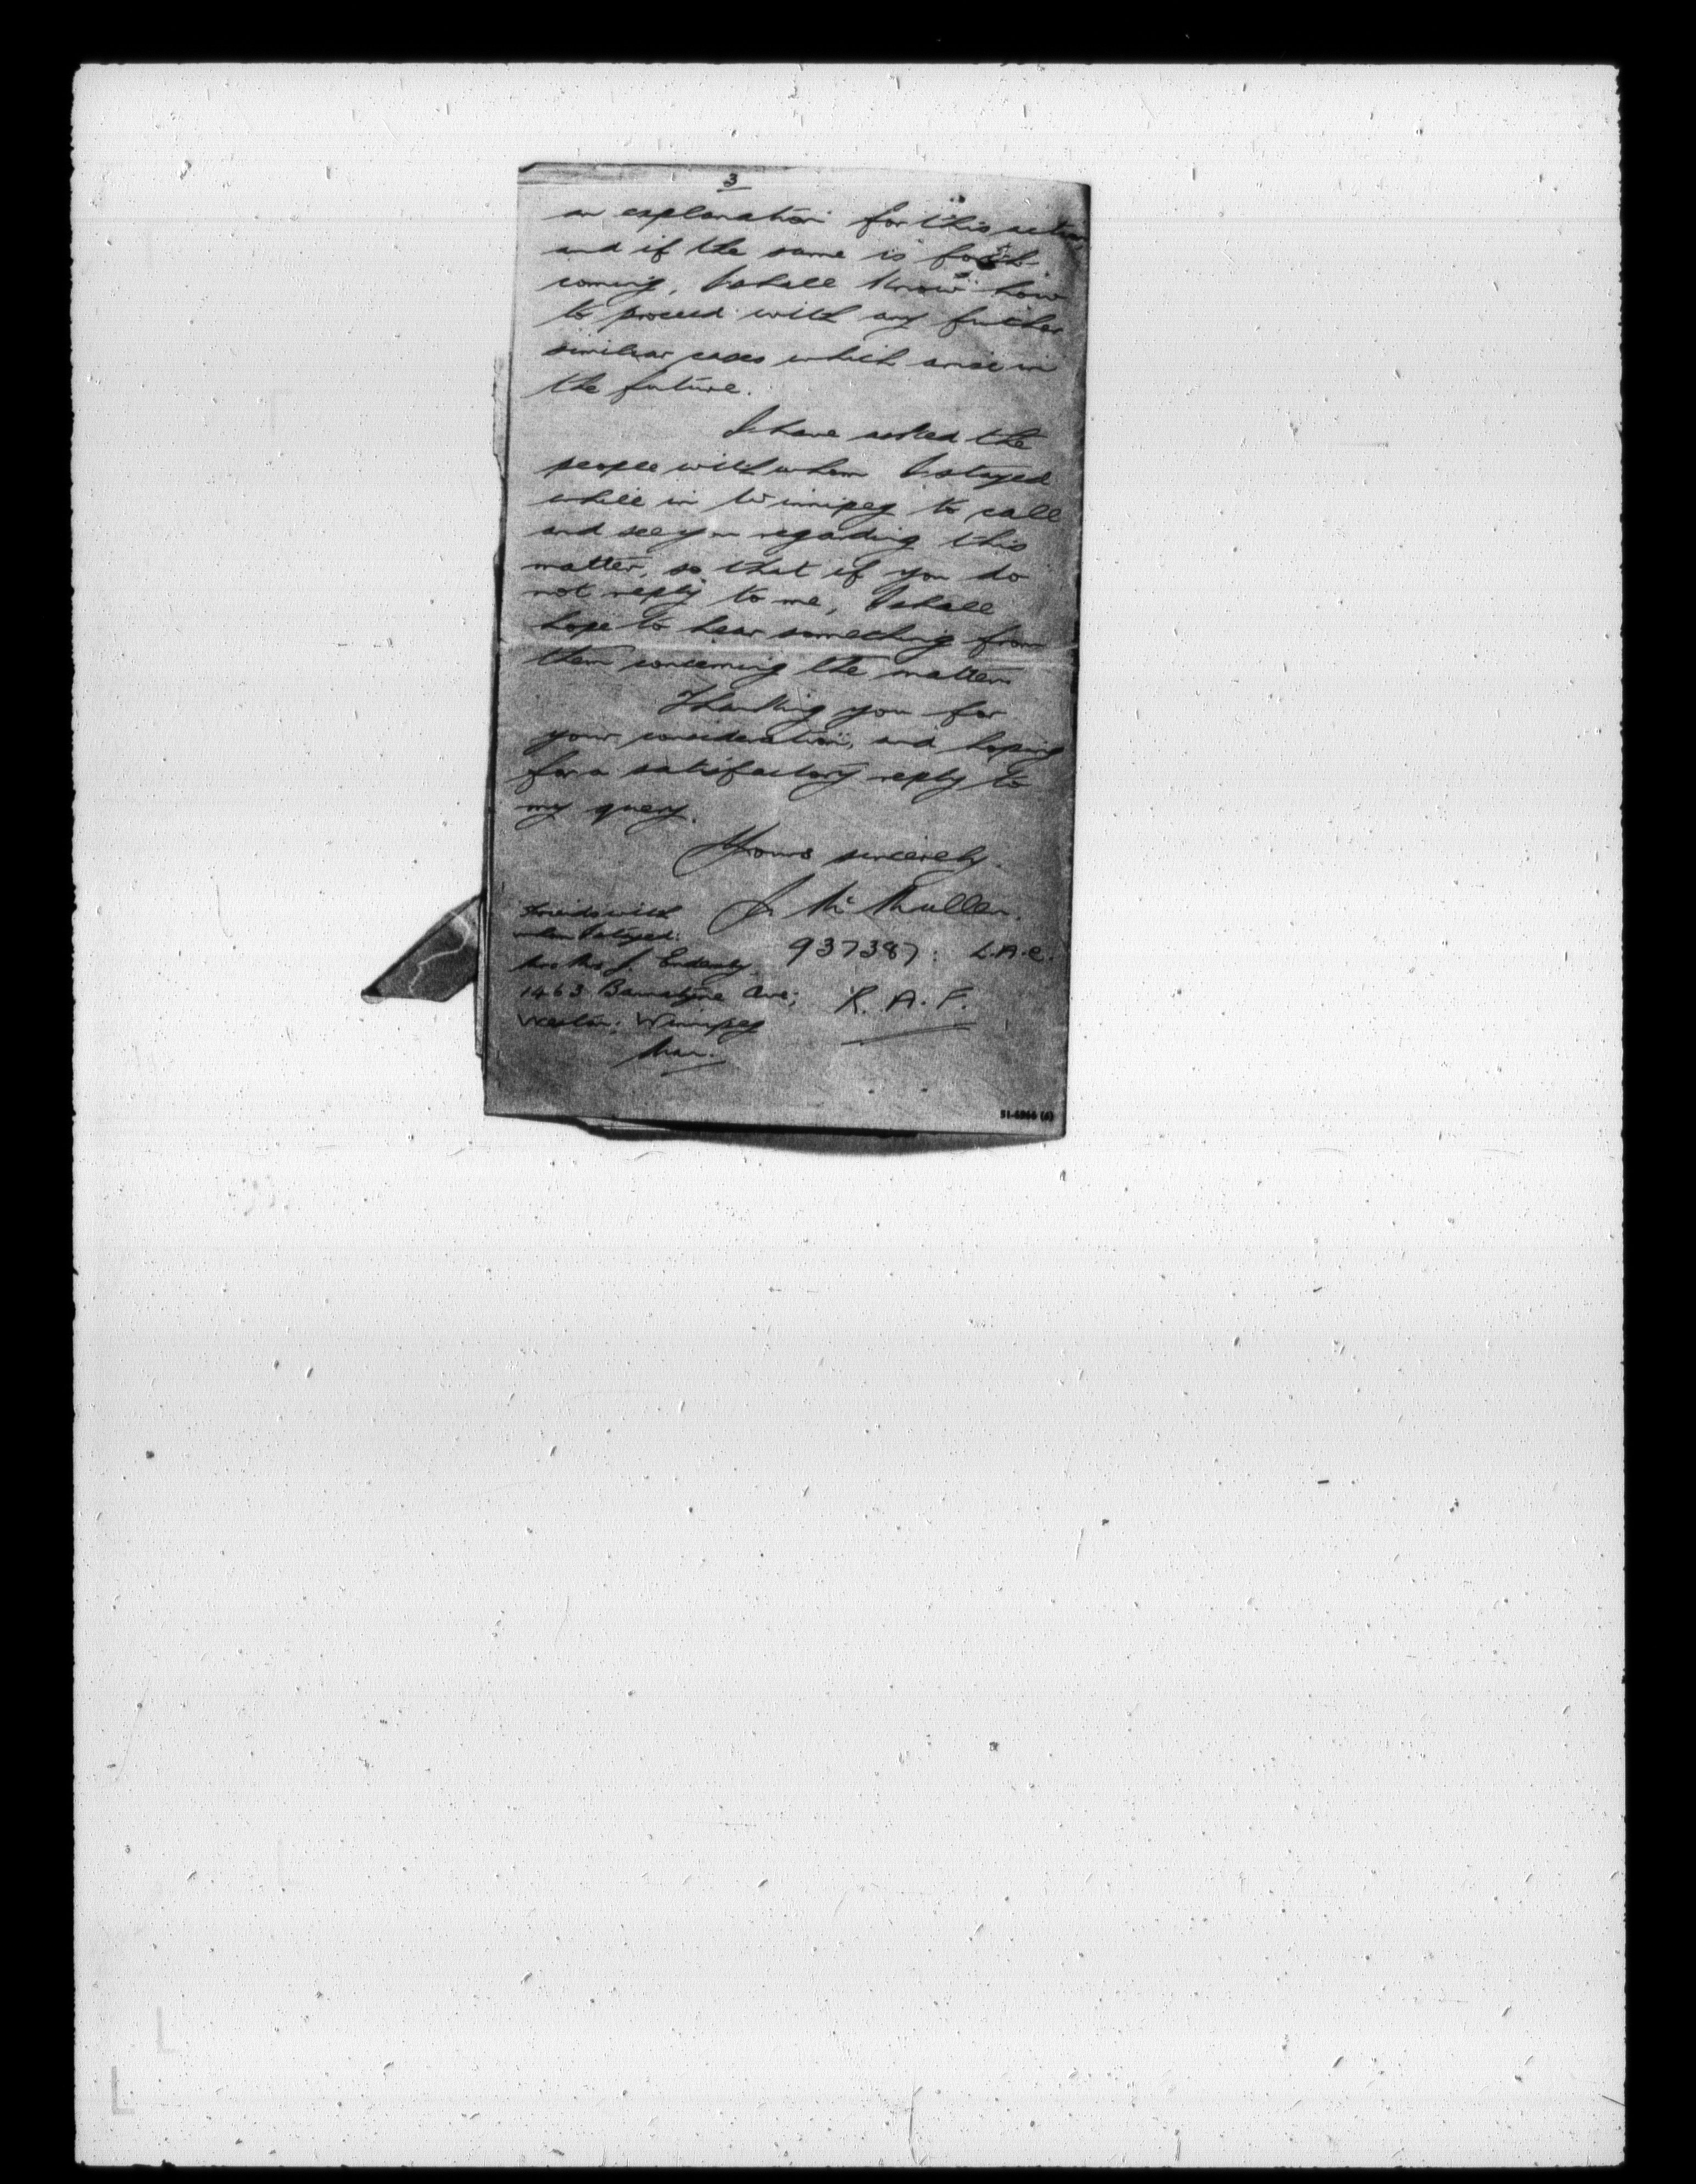 3
an explanation for this action
and if the same is forth-
coming, I shall know how
to proceed with any further
similiar cases which arise in
the future.
I have asked the
people with whom I stayed
while in Winnipeg to call
and see you regarding this
matter, so that if you do
not reply to me, I shall
hope to hear something from
them concerning the matter.
Thanking you for
your consideration, and hoping
for a satisfactory reply to
my query.
Yours sincerely.
J. McMullen.
937387: L.A.C.
R. A. F.
Friends with
whom I stayed:
J.
1463 Bannatyne Ave;
Weston; Winnipeg
Man.